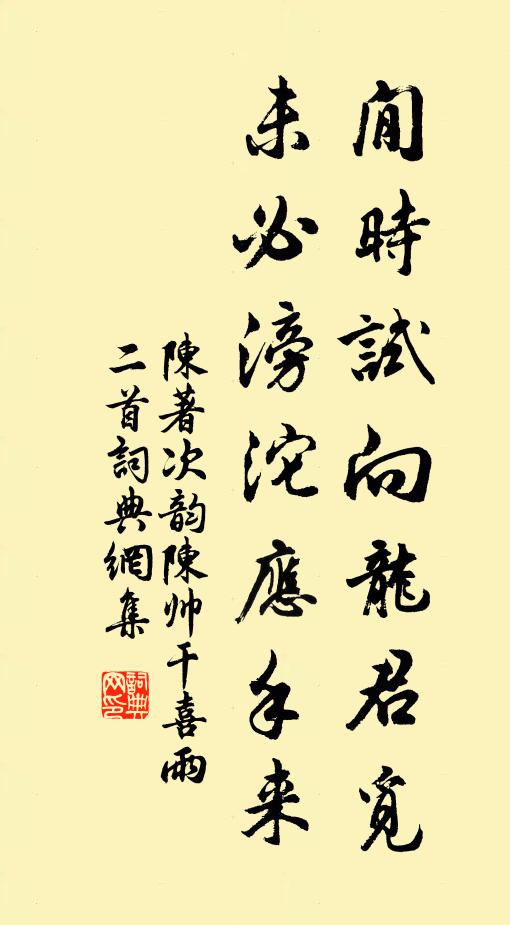 閒時試向龍君覓
未必滂沱應手来
陳著次韵陳帅干喜雨
二首詞典網集
詞典网印